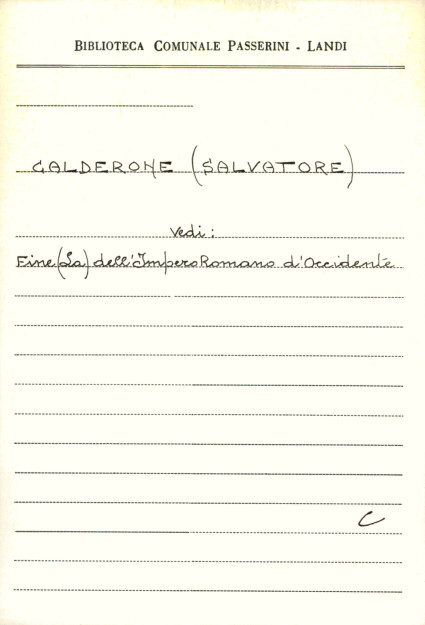 BIBLIOTECA COMUNALE PASSERINI - LANDI
CALDERONE (SALVATORE)
Vedi:
Fine (La) dell'Impero Romano d'Occidente
C